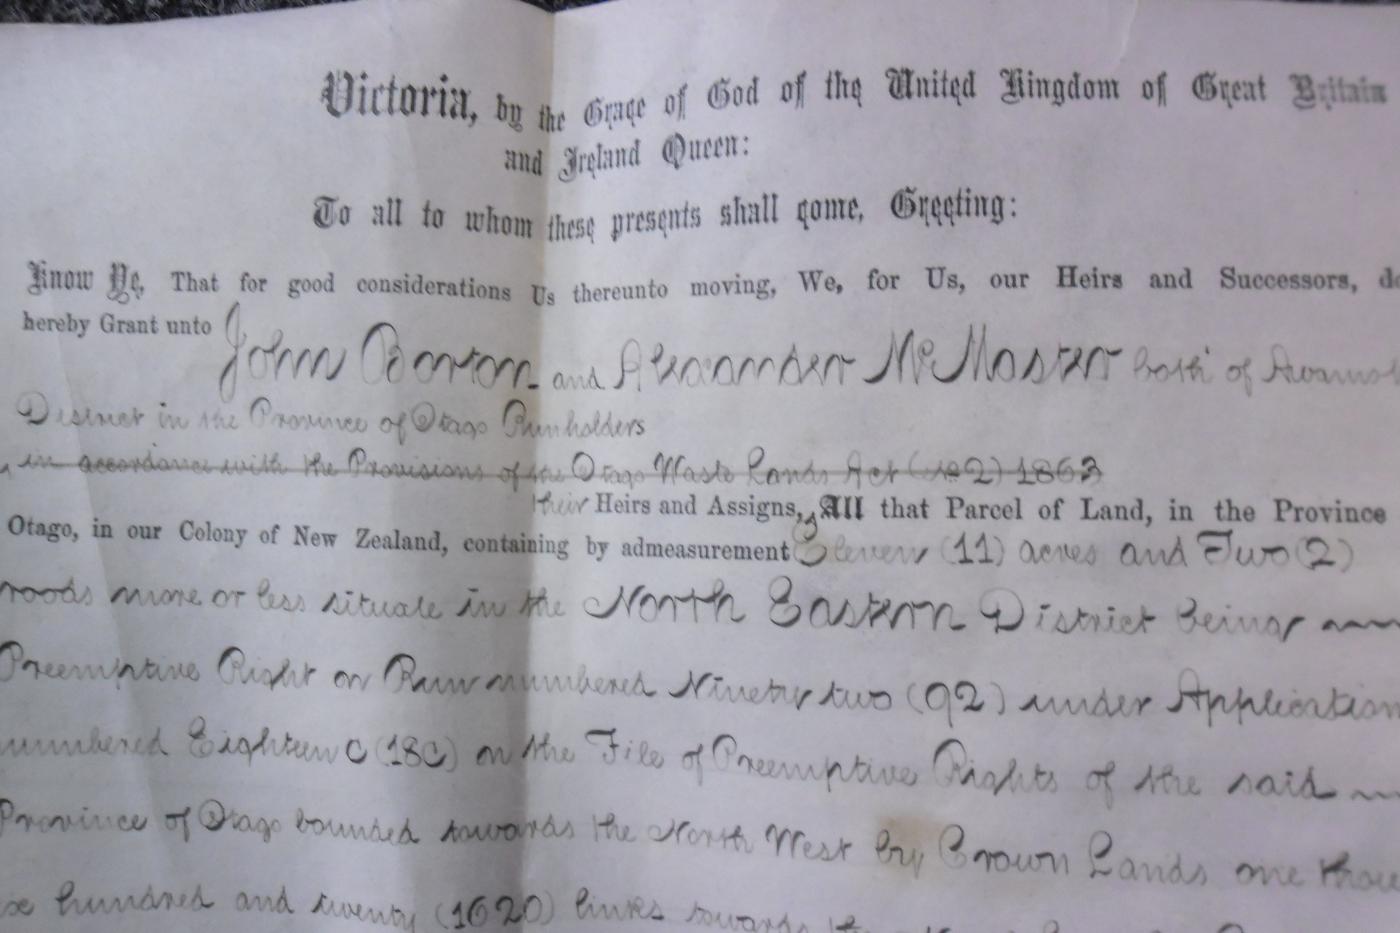 Victoria, by the Grace of God of the United Kingdom of Great Britain
and Ireland Queen:
To all to whom these presents shall come, Greeting:
Know Ye, That for good considerations Us thereunto moving, We, for Us, our Heirs and Successors, do
hereby Grant unto John Borton and Alexander McMaster both of
District in the Province of Otago Runholders
in accordance with the Provisions of the Otago Waste Lands Act (No 2) 1863
their Heirs and Assigns, All that Parcel of Land, in the Province
Otago, in our Colony of New Zealand, containing by admeasurement Eleven (11) acres and Two (2)
roods more or less situate in the North Eastern District being
Preemptive Right on Run numbered Ninety two (92) under Application
numbered Eighteen C (18C) on the File of Preemptive Rights of the said
Province of Otago bounded towards the North West by Crown Lands one
hundred and twenty (1620) links towards